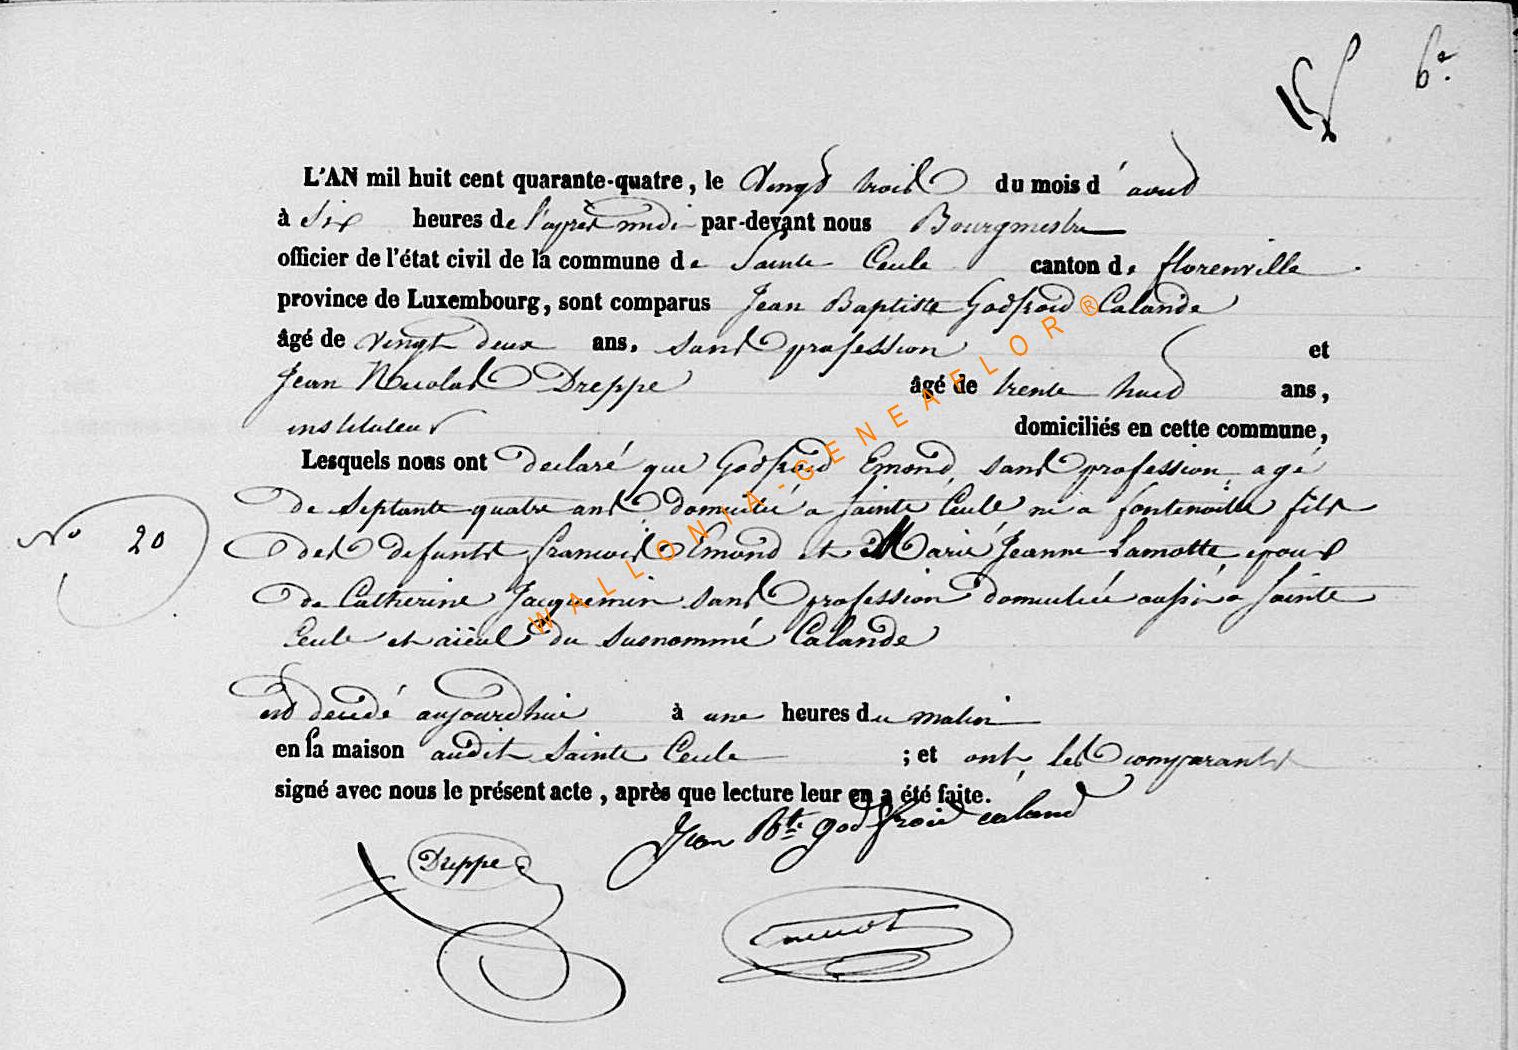 6e.
L'AN mil huit cent quarante-quatre, le Vingt trois du mois d'aout
à Six heures de l'après midi par-devant nous Bourgmestre
officier de l'état civil de la commune de Sainte Cecile canton de florenville
province de Luxembourg, sont comparus Jean Baptiste Godfroid Calande
âgé de vingt deux ans, sans profession et
Jean Nicolas Dreppe âgé de trente huit ans,
instituteur domiciliés en cette commune,
Lesquels nous ont declaré que Godfroid Emond, sans profession, agé
de septante quatre ans, domicilié a Sainte Cecile né a fontenoille fils
No 20
des defunts francois Emond et Marie Jeanne Lamotte epoux
de Catherine Jacquemin sans profession domiciliée aussi a Sainte
Cecile et aïeul du susnommé Calande
est decedé aujourdhui à une heures du matin
en la maison audit Sainte Cecile ; et ont les comparants
signé avec nous le présent acte, après que lecture leur en a été faite.
Jean Bte godfroid caland
Dreppe
WALLONIA-GENEAFLOR®